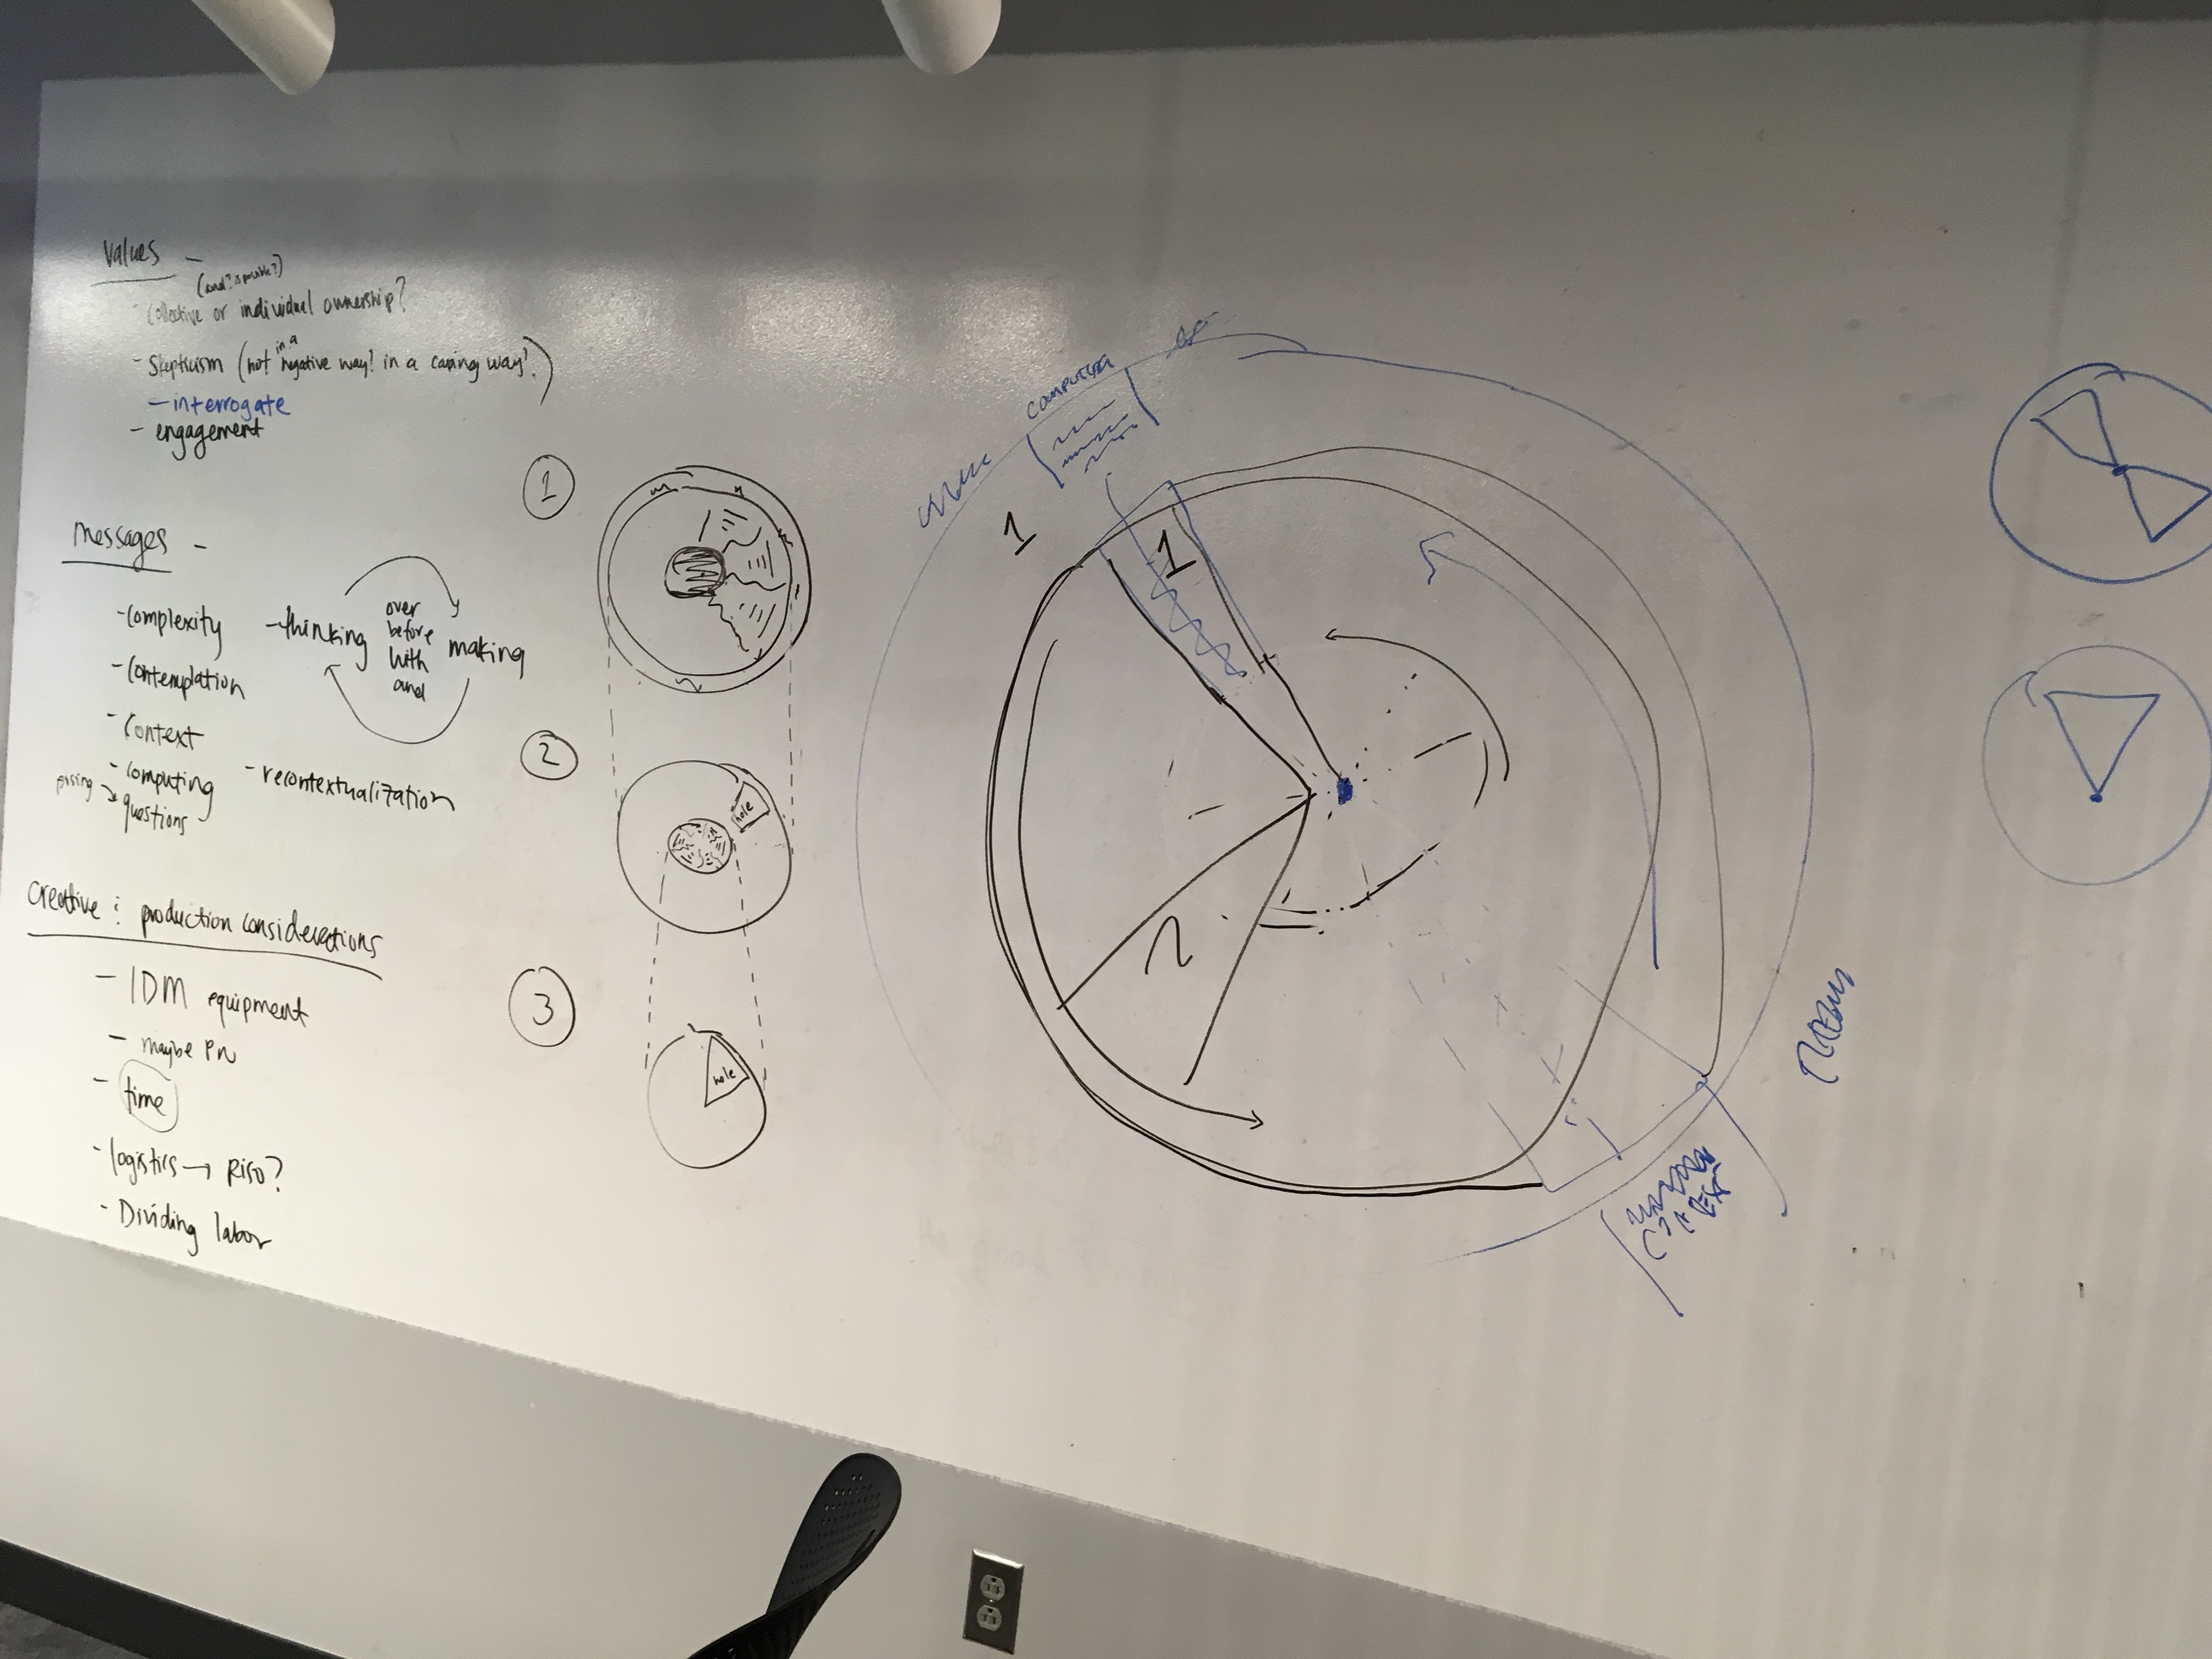 Values -
(and? is possible?)
- Collective or individual ownership?
- Skepticism (not in a negative way! in a caring way!)
- interrogate
- engagement
Messages -
- complexity
- contemplation
- Context
- computing
posing → questions
- thinking
over
before
with
and
making
- recontextualization
Creative & production considerations
- IDM equipment
- maybe PN
- time
- logistics → RISO?
- Dividing labor
1
2
hole
3
hole
COMPUTER
1
1
2